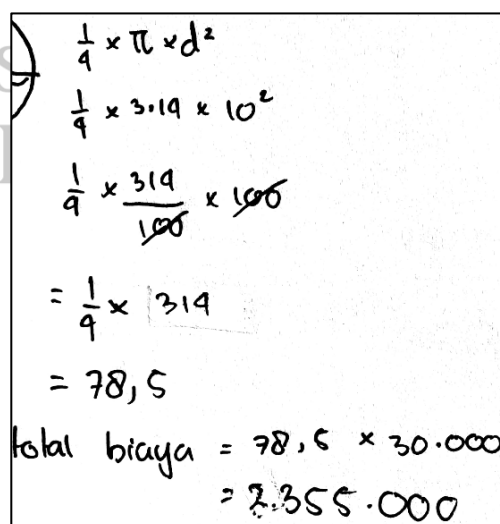 1/4 × π × d²
1/4 × 3.14 × 10²
1/4 × 314/100 × 100
= 1/4 × 314
= 78,5
total biaya = 78,5 × 30.000
= 2.355.000